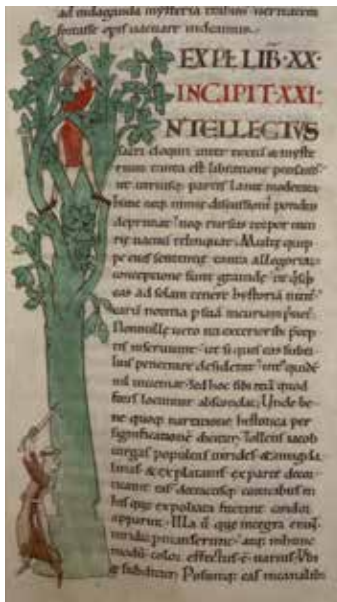 ad indaganda mysteria trahim ueritatem
fortasse opis uacuare uideamur.
EXPL LIB XX
INCIPIT XXI
NTELLECTVS
sacri eloquii inter textū & myste
rium tanta est libratione pensand
ut utriusq; partis lance moderata
hunc neq; nimię discussionis pondus
deprimat neq; rursus torpor incu
rię uacuū relinquat. Multę quip
pe eius sententię tanta allegoriaꝝ
conceptione sunt grauidę ut qſq;
eas ad solam tenere hystoriā
notitia p suā incuriam
Nonnullę uero ita exterioribꝰ pcep
tis inseruiunt ut si quis eas subti
lius penetrare desiderat intꝰ quidē
nil inueniat sed hoc sibi etiā quod
foris locuntur abscondat. Unde be
ne quoq; narratione hystorica per
significationē dicitur. Tollens iacob
uirgas populeas uirides & amigda
linas & ex platanis ex parte decor
ticauit eas detractisq; corticibus in
his quę expoliata fuerant candor
apparuit. Illa ū quę integra erant
uiridia pmanserunt atq; in hunc
modū color effectus ē uarius. Ubi
& subditur. Posuitq; eas in canalibꝰ